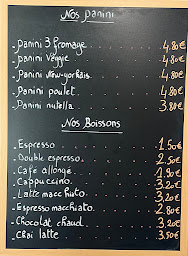 Nos Panini
- Panini 3 fromage . . . . . 4,80€
- Panini veggie . . . . . 4,80€
- Panini New-yorkais . . . . 4,80€
- Panini poulet . . . . . 4,80€
- Panini nutella . . . . . 3,80€
Nos Boissons
- Espresso . . . . . 1.50€
- Double espresso . . . . . 2.50€
- Café allongé . . . . . 1.80€
- Cappuccino . . . . . 3.20€
- Latte macchiato . . . . . 3.20€
- Espresso macchiato . . . . 2.80€
- Chocolat chaud . . . . . 3.20€
- Chai latte . . . . . 3.50€